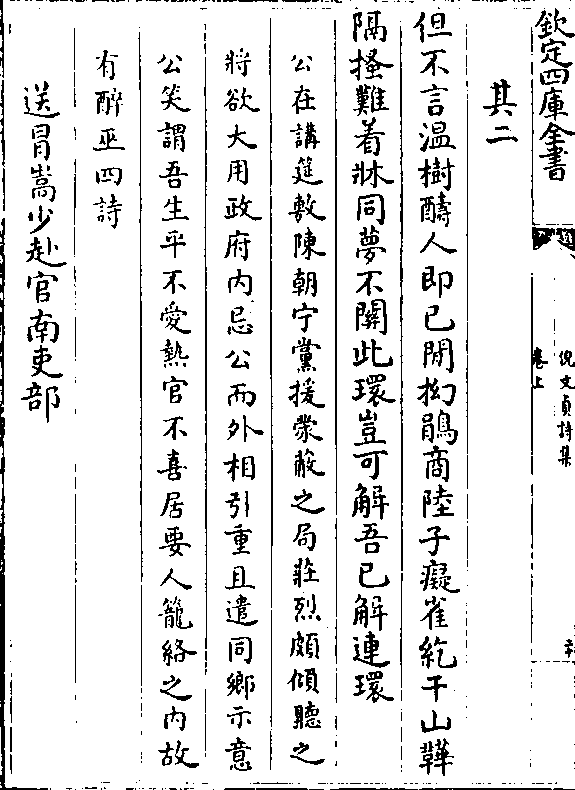 欽定四庫全書
倪文貞詩集
卷上
其二
但不言溫樹醻人即已閒拗鵑商陸子癡雀紇干山鞾
隔搔難着牀同夢不關此環豈可解吾已解連環
公在講筵敷陳朝宁黨援蒙蔽之局莊烈頗傾聽之
將欲大用政府内忌公而外相引重且遣同鄉示意
公笑謂吾生平不愛熱官不喜居要人籠絡之内故
有醉巫四詩
送冒嵩少赴官南吏部